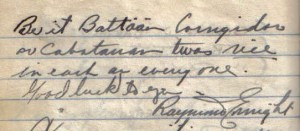 Be it Battaan Corrigidor
or Cabatanan twas rice
in each or every one.
Good luck to you
Raymond Enright